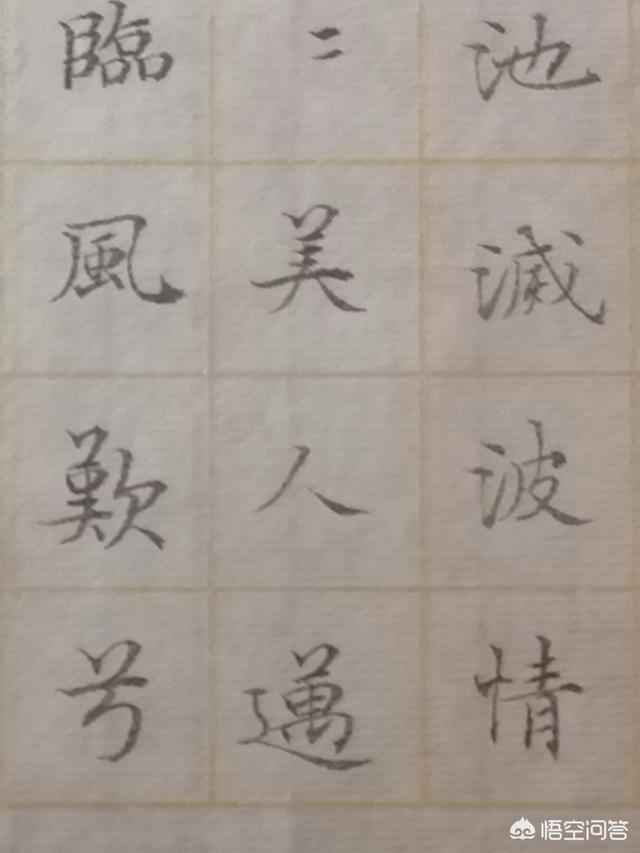 池滅波情
〻美人邁
臨風歎兮
悟空问答